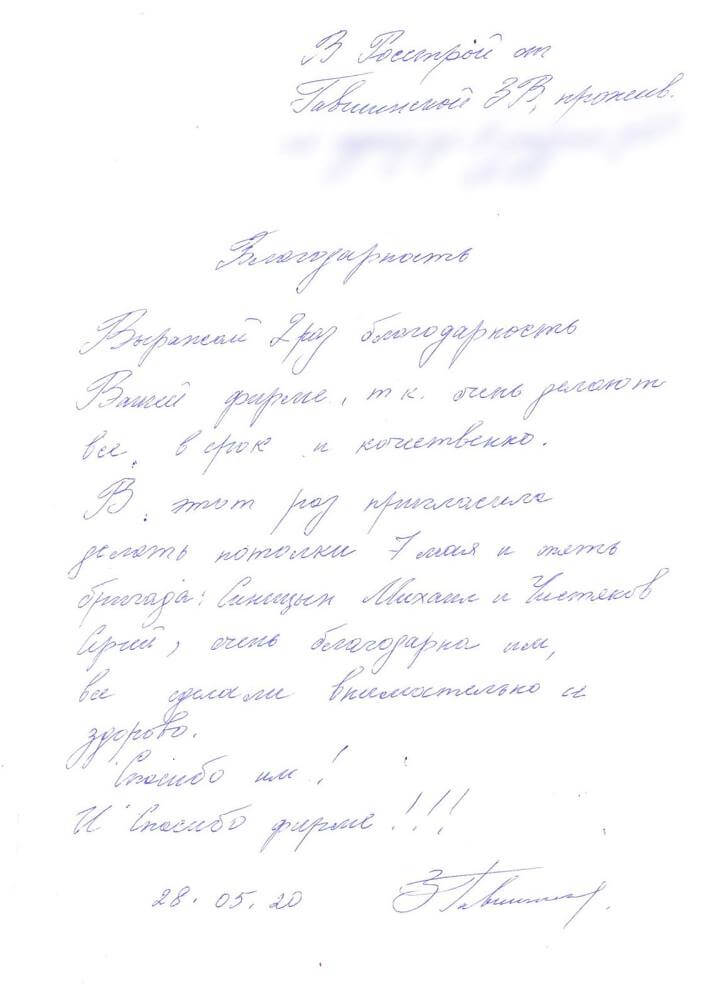 В Росстрой от
Гавшинской ЗВ, прожив.
Благодарность
Выражаю 2 раз благодарность
Вашей фирме, т.к. очень делают
все в срок и качественно.
В этот раз пригласила
делать потолки 7 мая и
бригада: Синицын Михаил и Чистяков
Сергей, очень благодарна им,
все сделали внимательно и
здорово.
Спасибо им!
И Спасибо фирме!!!
28.05.20